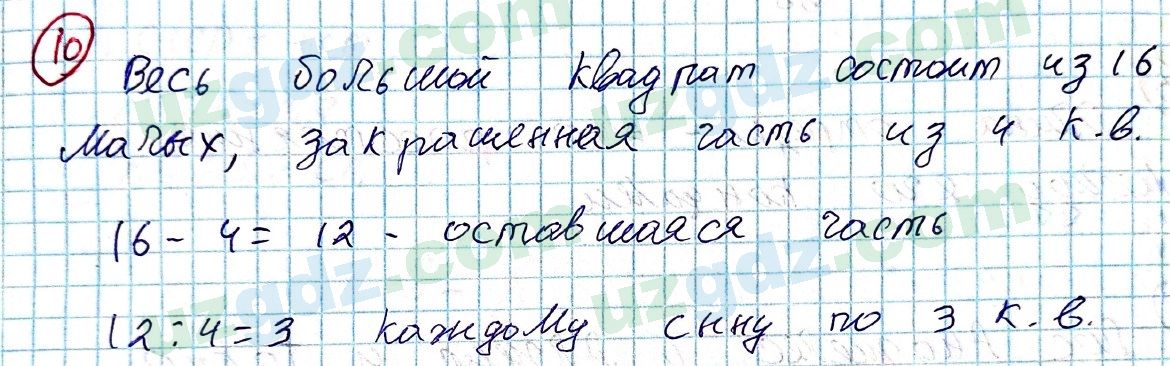 10
Весь большой квадрат состоит из 16
малых, закрашенная часть из 4 к.в.
16 - 4 = 12 - оставшаяся часть
12 : 4 = 3 каждому сыну по 3 к.в.
uzgdz.com
uzgdz.com
uzgdz.com
uzgdz.com